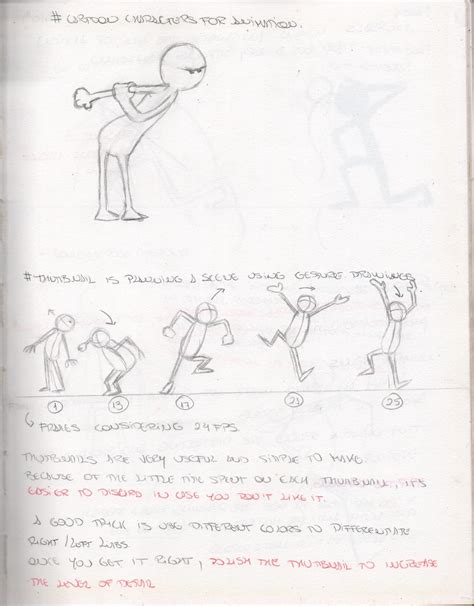 # CARTOON CHARACTERS FOR ANIMATION.
# THUMBNAIL IS PLANNING A SCENE USING GESTURE DRAWINGS.
1 13 17 23 25
FRAMES CONSIDERING 24FPS
THUMBNAILS ARE VERY USEFUL AND SIMPLE TO MAKE.
BECAUSE OF THE LITTLE TIME SPENT ON EACH THUMBNAIL, IT'S
EASIER TO DISCARD IN CASE YOU DON'T LIKE IT.
A GOOD TRICK IS USE DIFFERENT COLORS TO DIFFERENTIATE
RIGHT/LEFT LIMBS.
ONCE YOU GET IT RIGHT, POLISH THE THUMBNAIL TO INCREASE
THE LEVEL OF DETAIL